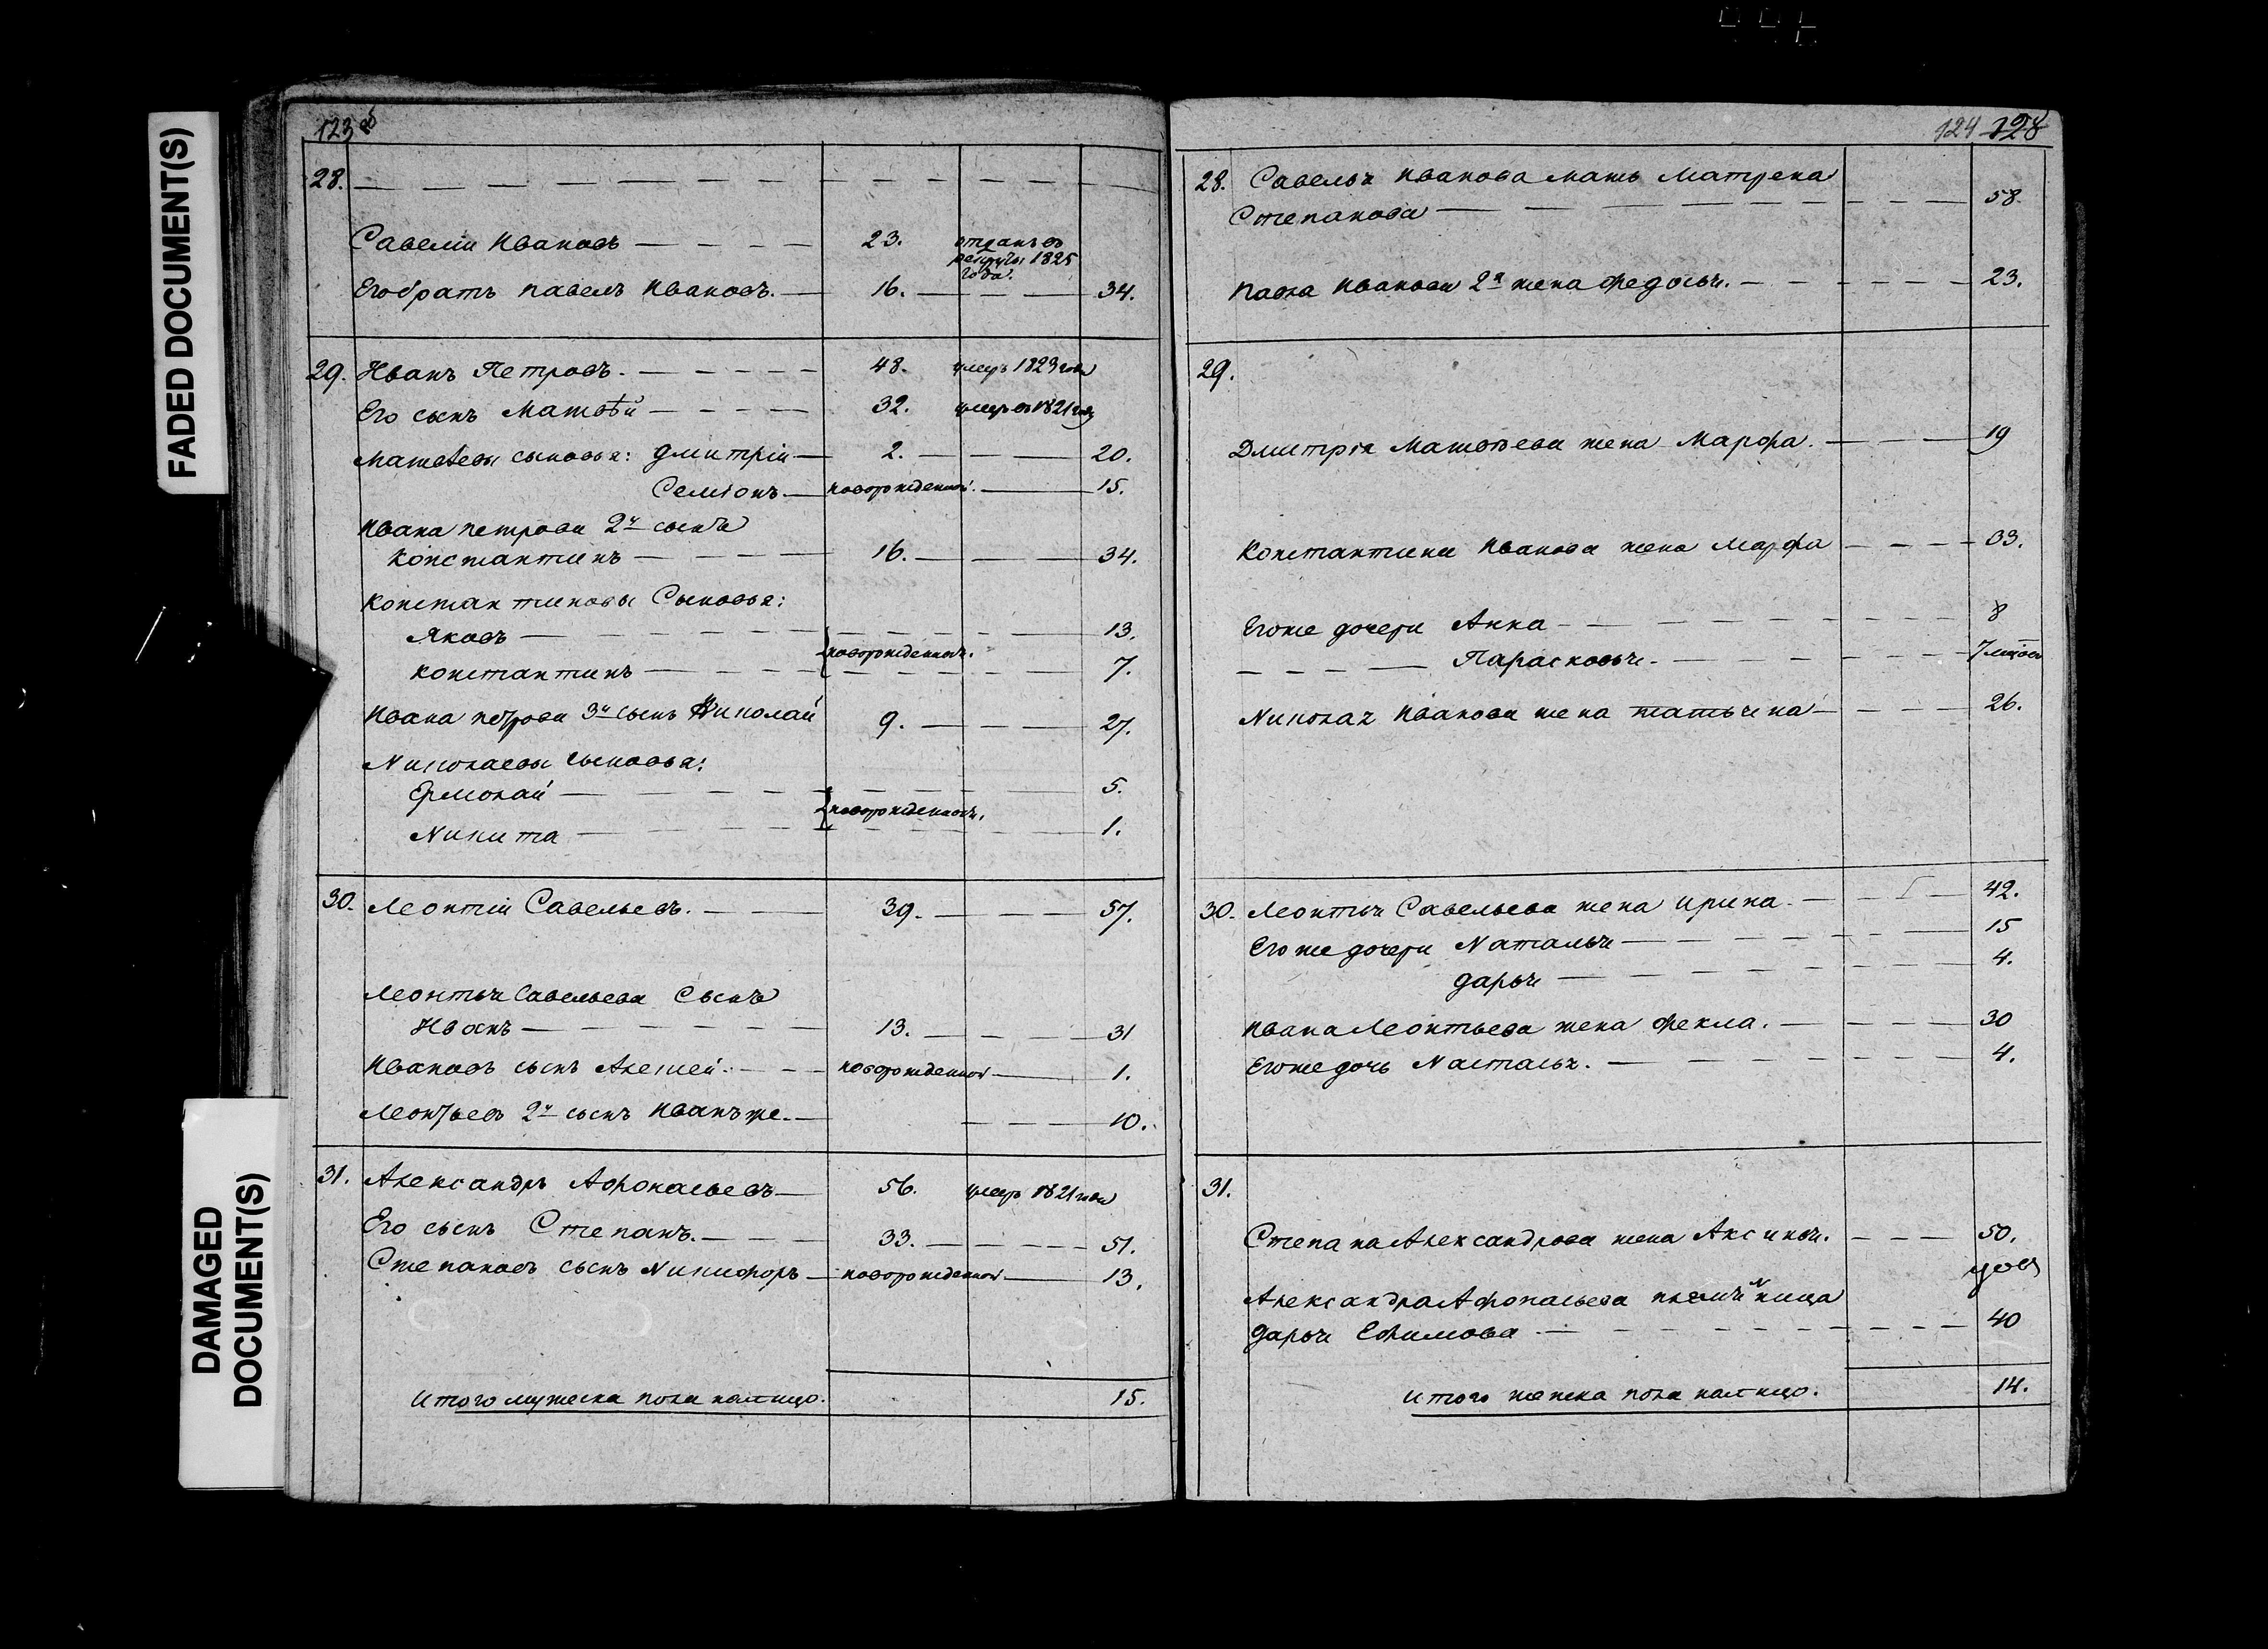 FADED DOCUMENT(S)
DAMAGED
DOCUMENT(S)
123 об
28.
Савелiй Ивановъ 23. отданъ въ
рекруты 1825
года.
Его братъ Павелъ Ивановъ. 16. 34.
29. Иванъ Петровъ. 48. умеръ 1823 года
Его сынъ Матвѣй 32. умеръ въ 1821 году
Матвѣевы сыновья: Дмитрiй 2. 20.
Семiонъ. новорожденной. 15.
Ивана Петрова 2й сынъ
Константинъ 16. 34.
Константиновы Сыновья:
Яковъ 13.
новорожденныя.
Константинъ 7.
Ивана Петрова 3й сынъ Николай 9. 27.
Николаевы сыновья:
Ермолай 5.
новорожденныя.
Никита 1.
30. Леонтiй Савельевъ. 39. 57.
Леонтья Савельева Сынъ
Иванъ 13. 31
Ивановъ сынъ Алексей. новорожденной 1.
Леонтьевъ 2й сынъ Иванъ же. 10.
31. Александръ Афонасьевъ 56. умеръ 1821 года
Его сынъ Степанъ. 33. 51.
Степановъ сынъ Никифоръ новорожденной 13.
Итого мужеска пола налицо. 15.
124 128
28. Савелья Иванова мать Матрена
Степанова 58.
Павла Иванова 2я жена Федосья. 23.
29.
Дмитрiя Матвѣева жена Марфа. 19
Константина Иванова жена Марфа 33.
Его же дочери Анна 8
Парасковья. 7 мцовъ
Николая Иванова жена Татьяна 26.
30. Леонтья Савельева жена Ирина. 42.
Его же дочери Наталья 15
Дарья 4.
Ивана Леонтьева жена Фекла. 30
Его же дочь Наталья. 4.
31.
Степана Александрова жена Аксинья. 50.
Александра Афонасьева племянница
Дарья Ефимова 40
Итого женска пола налицо. 14.